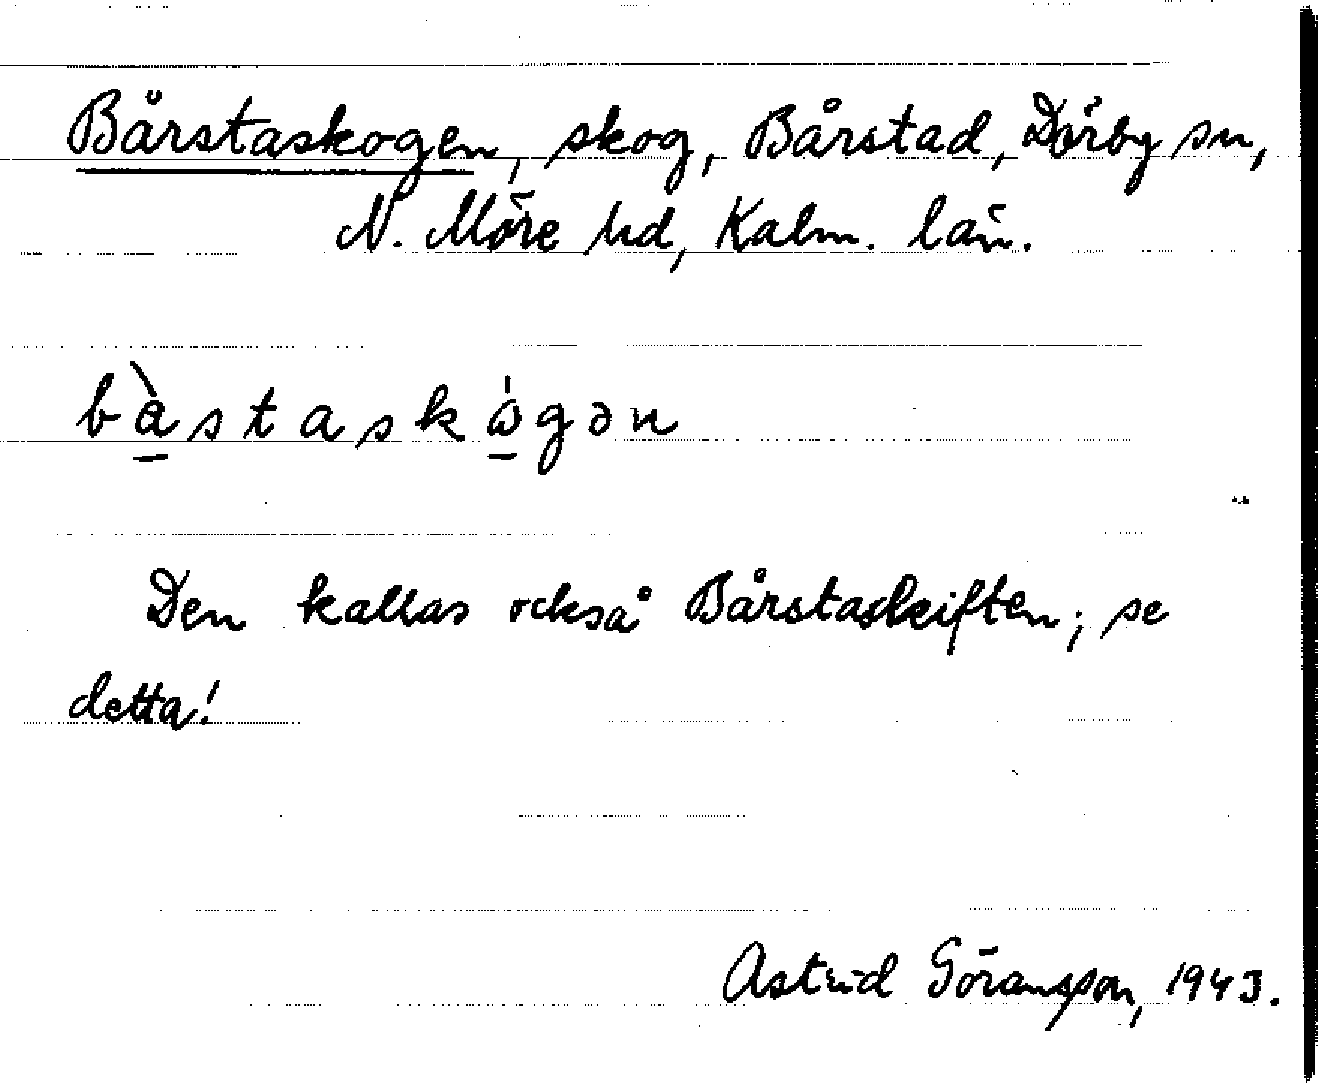 Bårstaskogen, skog, Bårstad, Dörby sn,
N. Möre hd, Kalm. län.
bàstaskɷ́gən
Den kallas också Bårstaskiften; se
detta!
Astrid Göransson, 1943.